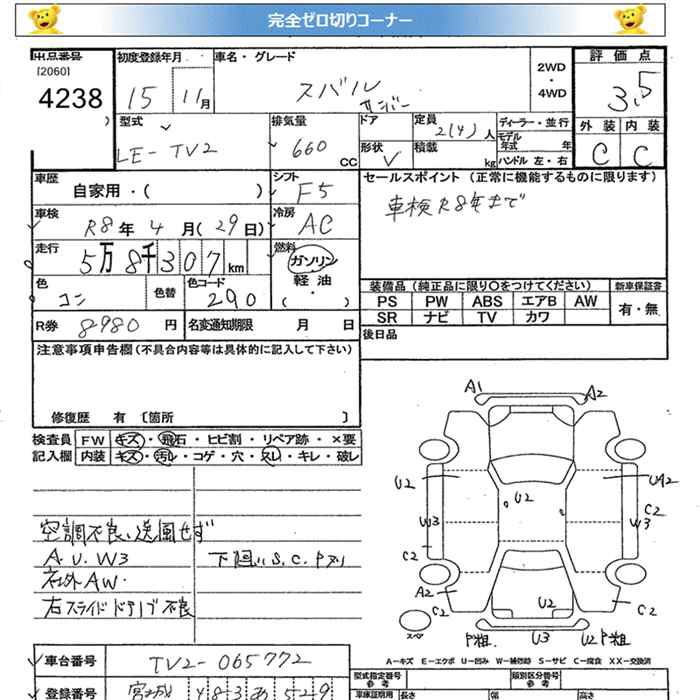 完全ゼロ切りコーナー
出品番号
[2060]
4238
初度登録年月
15 11月
車名・グレード
スバル
サンバー
2WD
・
4WD
評価点
3.5
外装 内装
C C
型式
LE-TV2
排気量
660 CC
ドア
形状 V
定員
2(4)人
積載 kg
ディーラー・並行
モデル年式 年
ハンドル 左・右
車歴
自家用・( )
シフト
F5
セールスポイント (正常に機能するものに限ります)
車検R8年まで
車検
R8年 4月(29日)
冷房
AC
走行
5万8千307km
燃料
ガソリン
軽油
( ・ )
色
コン
色替
色コード
290
装備品 (純正品に限り○をつけてください) 新車保証書
PS PW ABS エアB AW
SR ナビ TV カワ
有・無
R券 8980円
名変通知期限 月 日
後日品
注意事項申告欄(不具合内容等は具体的に記入して下さい)
修復歴 有 〔箇所 〕
検査員 FW キズ・飛石・ヒビ割・リペア跡・×要
記入欄 内装 キズ・汚レ・コゲ・穴・スレ・キレ・破レ
空調不良、送風せず
A.U.W3 下回り S.C.
社外AW・
右スライドドア 不良
A1 A2
U2 U2 U42
W3 C2 W3
C2 C2
A2 C2 U2 C2
スペア
P粗 U3 U2 P粗
A−キズ E−エクボ U−凹み W−補修跡 S−サビ C−腐食 XX−交換済
車台番号 TV2-065772
登録番号 宮城 483あ529
型式指定番号
参考
類別区分番号
参考
車庫証明用 長さ 幅 高さ